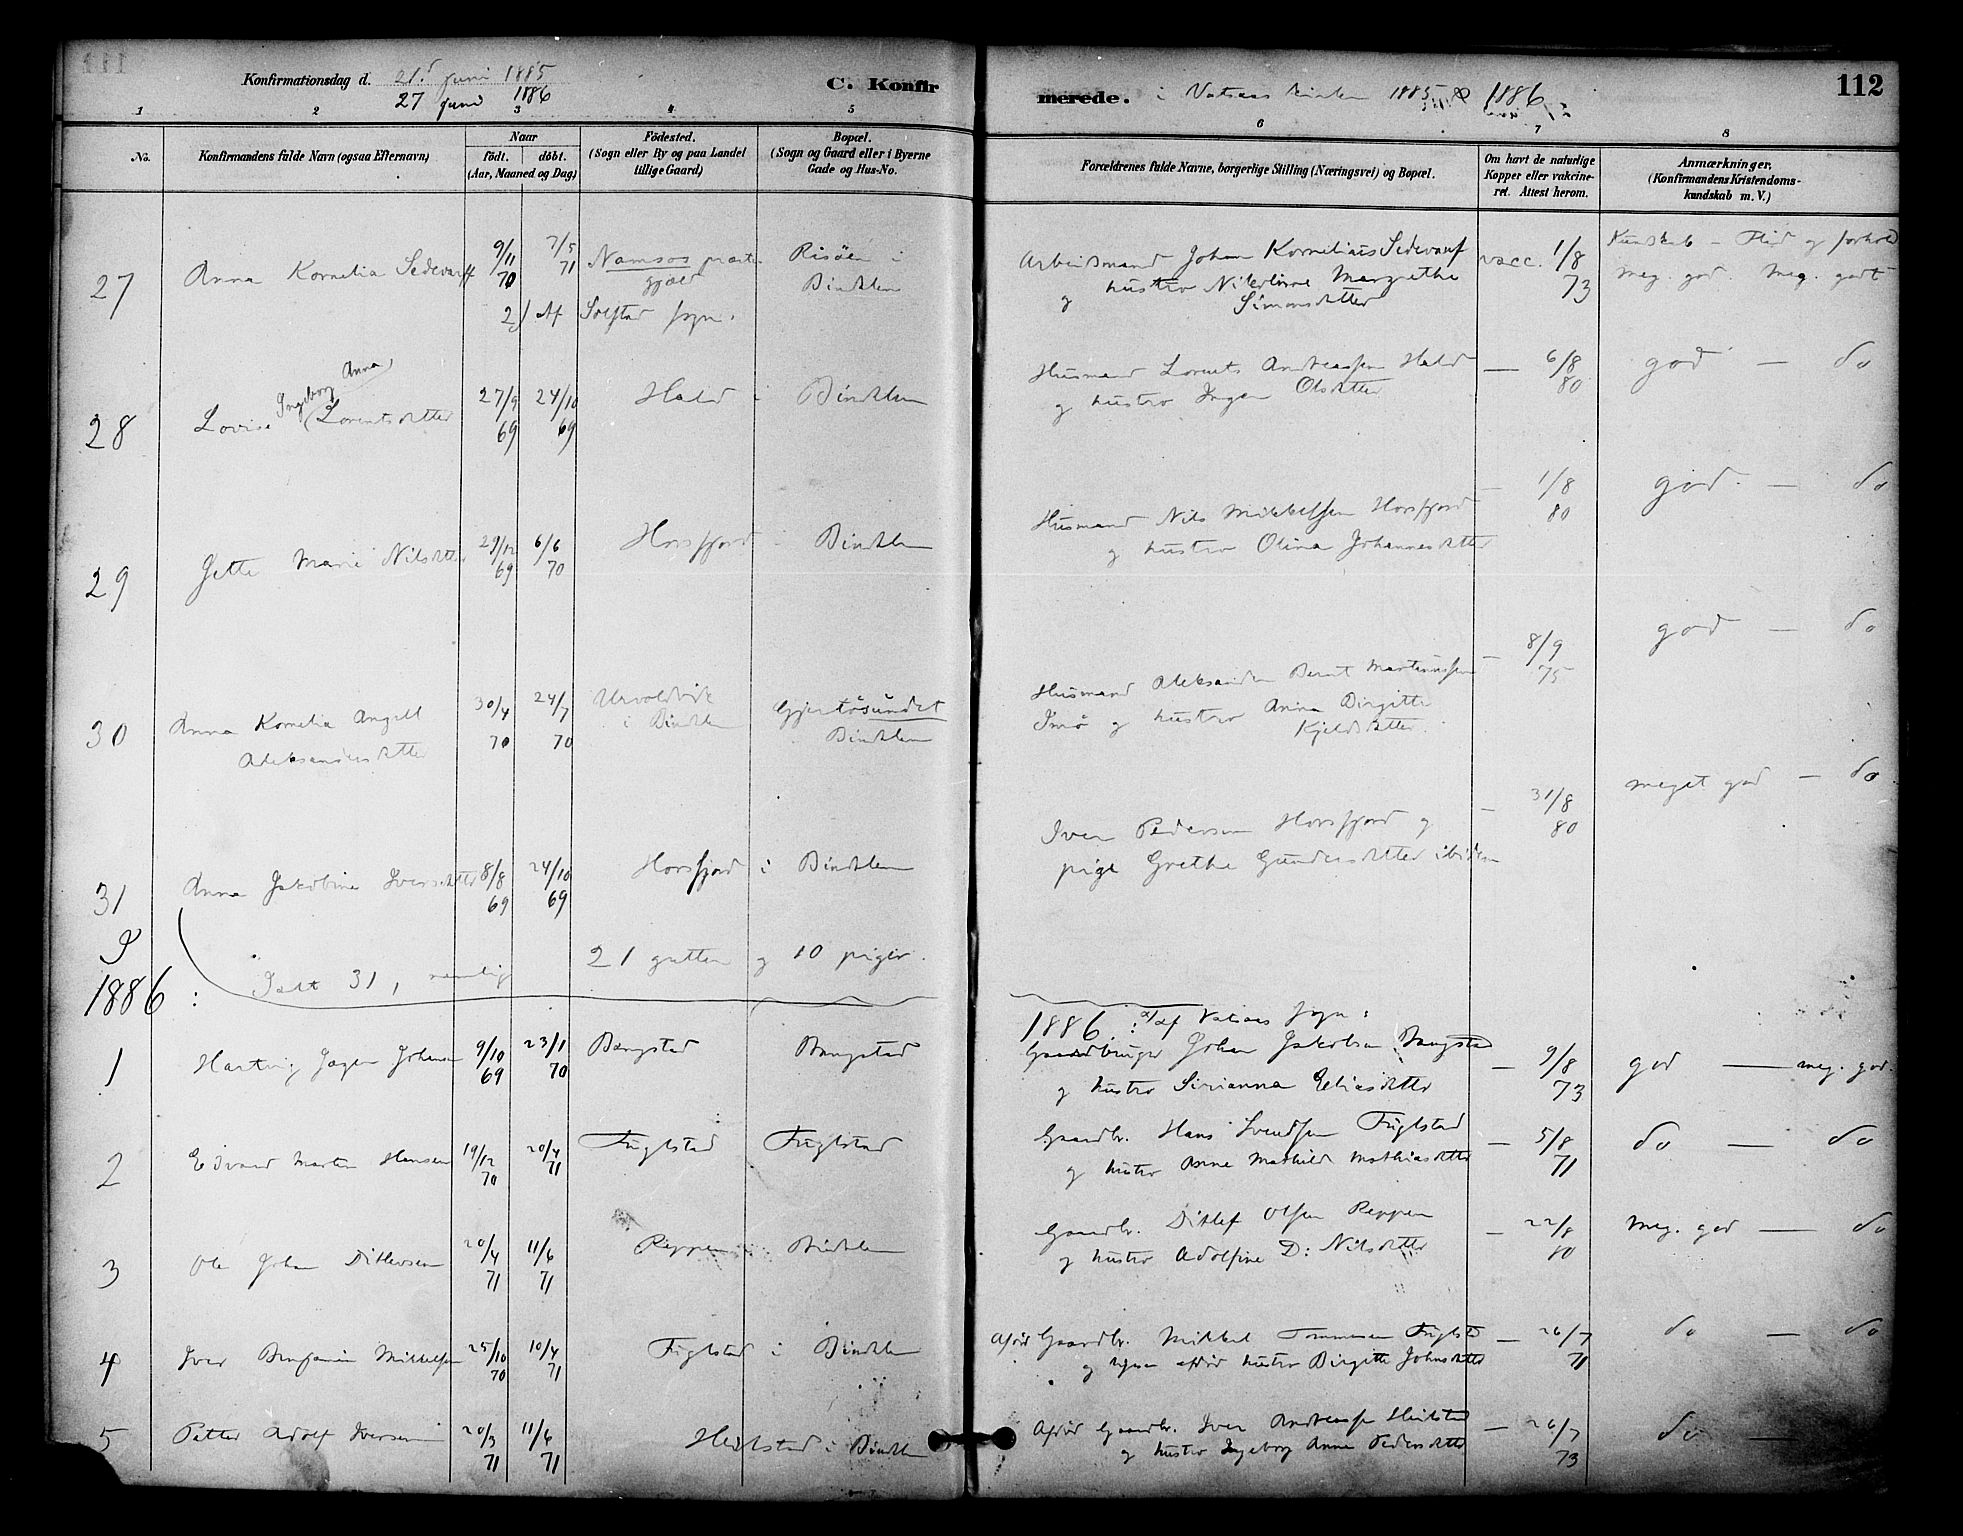 Konfirmationsdag d. 21. juni 1885
27 juni 1886
C. Konfirmerede. i Vatsaas kirken 1885 & 1886
112
1 2 3 4 5 6 7 8
No.
Konfirmandens fulde Navn (ogsaa Efternavn)
Naar
født. døbt.
(Aar, Maaned og Dag)
Födested.
(Sogn eller By og paa Landet
tillige Gaard)
Bopæl.
(Sogn og Gaard eller i Byerne
Gade og Hus-No.
Forældrenes fulde Navne, borgerlige Stilling (Næringsvei) og Bopæl.
Om havt de naturlige
Kopper eller vakcine-
ret. Attest herom.
Anmærkninger,
(Konfirmandens Kristendoms-
kundskab m.V.)
27 Anna Kornelia Sedevarf 9/11 70 7/5 71 Namsos præste gjæld Risöen i Bindalen
2) Af Solstad sogn.
Arbeidsmand Johan Kornelius Sedevarf
og hustro Nikoline Margrethe
Simonsdatter
vacc. 1/8 73
Kundskab – Flid og forhold
meg. god. meg. godt
28 Lovise Ingeborg Anna Lorentsdatter 27/9 69 24/10 69 Hald i Bindalen
Husmand Lorents Andreassen Hald
og hustro Inger Olsdatter
— 6/8 80 god — do
29 Jette Marie Nilsdatter 29/12 69 6/6 70 Horsfjord – Bindalen
Husmand Nils Mikkelsen Horsfjord
og hustro Olina Johannesdatter
— 1/8 80 god — do
30 Anna Kornelia Angell
Aleksandersdatter
30/4 70 24/7 70 Urvoldvik i Bindalen
Gjertösundet Bindalen
Husmand Aleksander Bernt Martinussen
Imö og hustro Anna Birgitte
Kjeldsdatter.
— 8/9 75 god — do
31 Anna Jakobine Iversdatter 8/8 69 24/10 69 Horsfjord i Bindalen
Iver Pedersen Horsfjord og
pige Grethe Gundersdatter ibidem
— 31/8 80 meget god — do
Ialt 31, nemlig 21 gutter og 10 piger.
I
1886 :
1886 : a/ af Vatsaas sogn :
1 Hartvig Jager Johansen 9/10 69 23/1 70 Bangstad Bangstad
Gaardbruger Johan Jakobsen Bangstad
og hustro Sirianna Eliasdatter
— 9/8 73 god — meg. god.
2 Edvard Martin Hansen 19/12 70 20/4 71 Fuglstad Fuglstad
Gaardbr. Hans Svendsen Fuglstad
og hustro Anne Mathild Mathiasdatter
— 5/8 71 do — do
3 Ole Johan Ditlevsen 20/4 71 11/6 71 Reppen i Bindalen
Gaardbr. Ditlef Olsen Reppen
og hustro Adolfine D: Nilsdatter
— 22/8 80 meg. god — do
4 Iver Benjamin Mikkelsen 25/10 70 10/4 71 Fuglstad i Bindalen
Afdöd Gaardbr. Mikkel Tommesen Fuglstad
og afdöd hustro Birgitte Johnsdatter
— 26/7 71 do — do
5 Petter Adolf Iversen 20/3 71 11/6 71 Heilstad i Bindalen
Afdöd Gaardbr. Iver Andreassen Heilstad
og hustro Ingeborg Anna Pedersdatter
— 26/7 73 do —